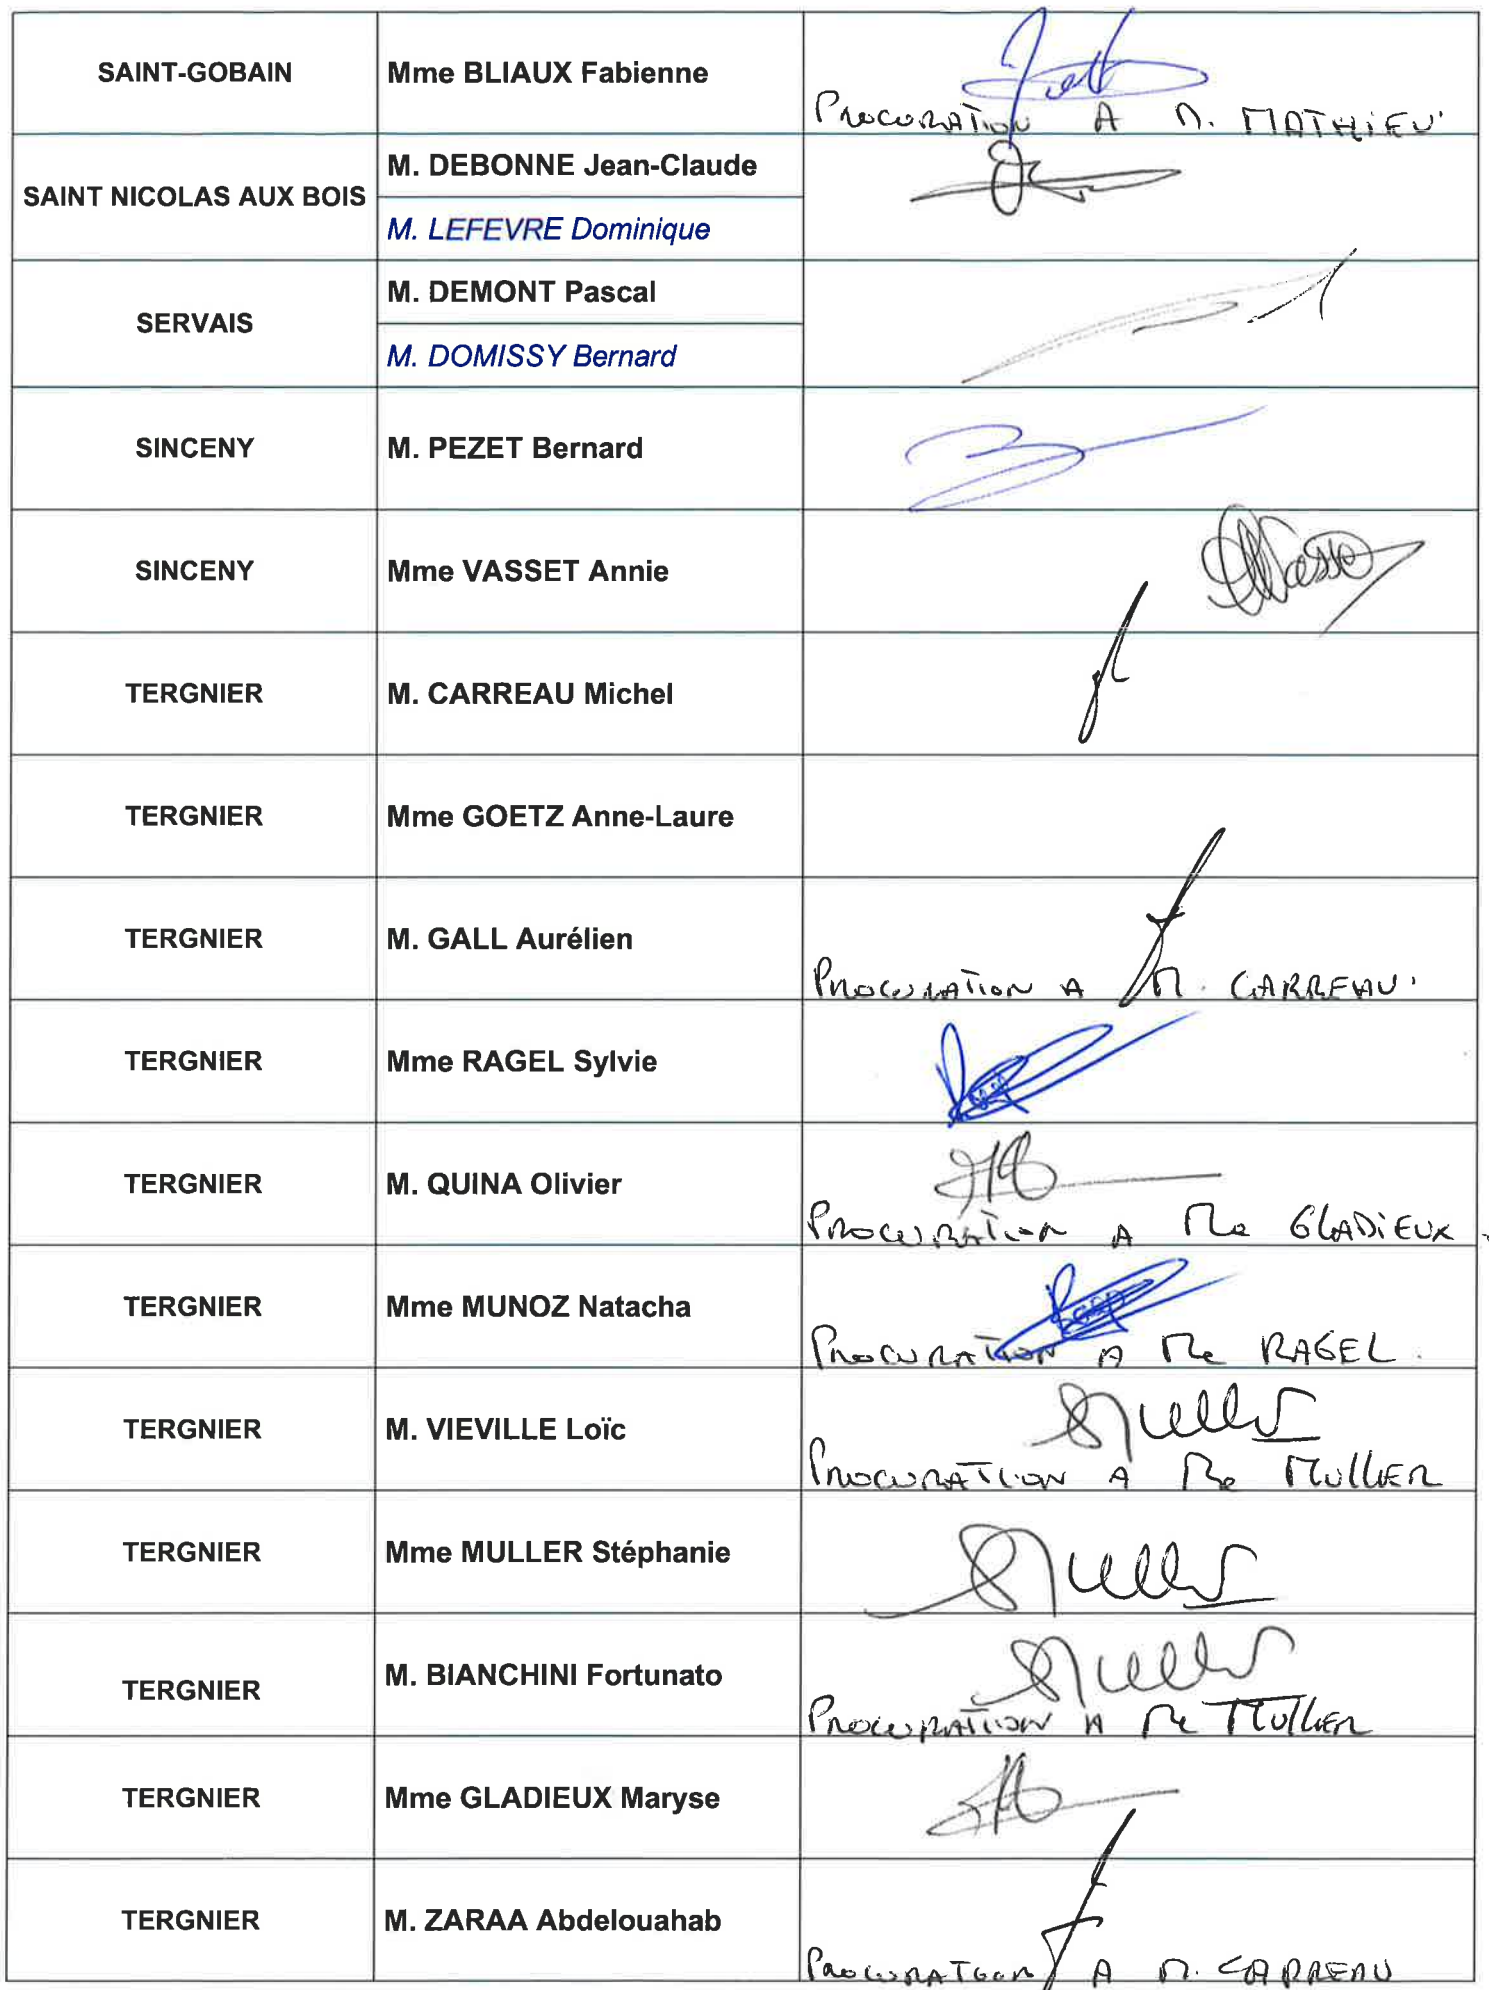 SAINT-GOBAIN
Mme BLIAUX Fabienne
PROCURATION A M. MATHIEU
SAINT NICOLAS AUX BOIS
M. DEBONNE Jean-Claude
M. LEFEVRE Dominique
SERVAIS
M. DEMONT Pascal
M. DOMISSY Bernard
SINCENY
M. PEZET Bernard
SINCENY
Mme VASSET Annie
TERGNIER
M. CARREAU Michel
TERGNIER
Mme GOETZ Anne-Laure
TERGNIER
M. GALL Aurélien
PROCURATION A M. CARREAU
TERGNIER
Mme RAGEL Sylvie
TERGNIER
M. QUINA Olivier
PROCURATION A Me GLADIEUX
TERGNIER
Mme MUNOZ Natacha
PROCURATION A Me RAGEL
TERGNIER
M. VIEVILLE Loïc
Muller
PROCURATION A Me MULLER
TERGNIER
Mme MULLER Stéphanie
Muller
TERGNIER
M. BIANCHINI Fortunato
Muller
PROCURATION A Me MULLER
TERGNIER
Mme GLADIEUX Maryse
TERGNIER
M. ZARAA Abdelouahab
PROCURATION A M. CARREAU